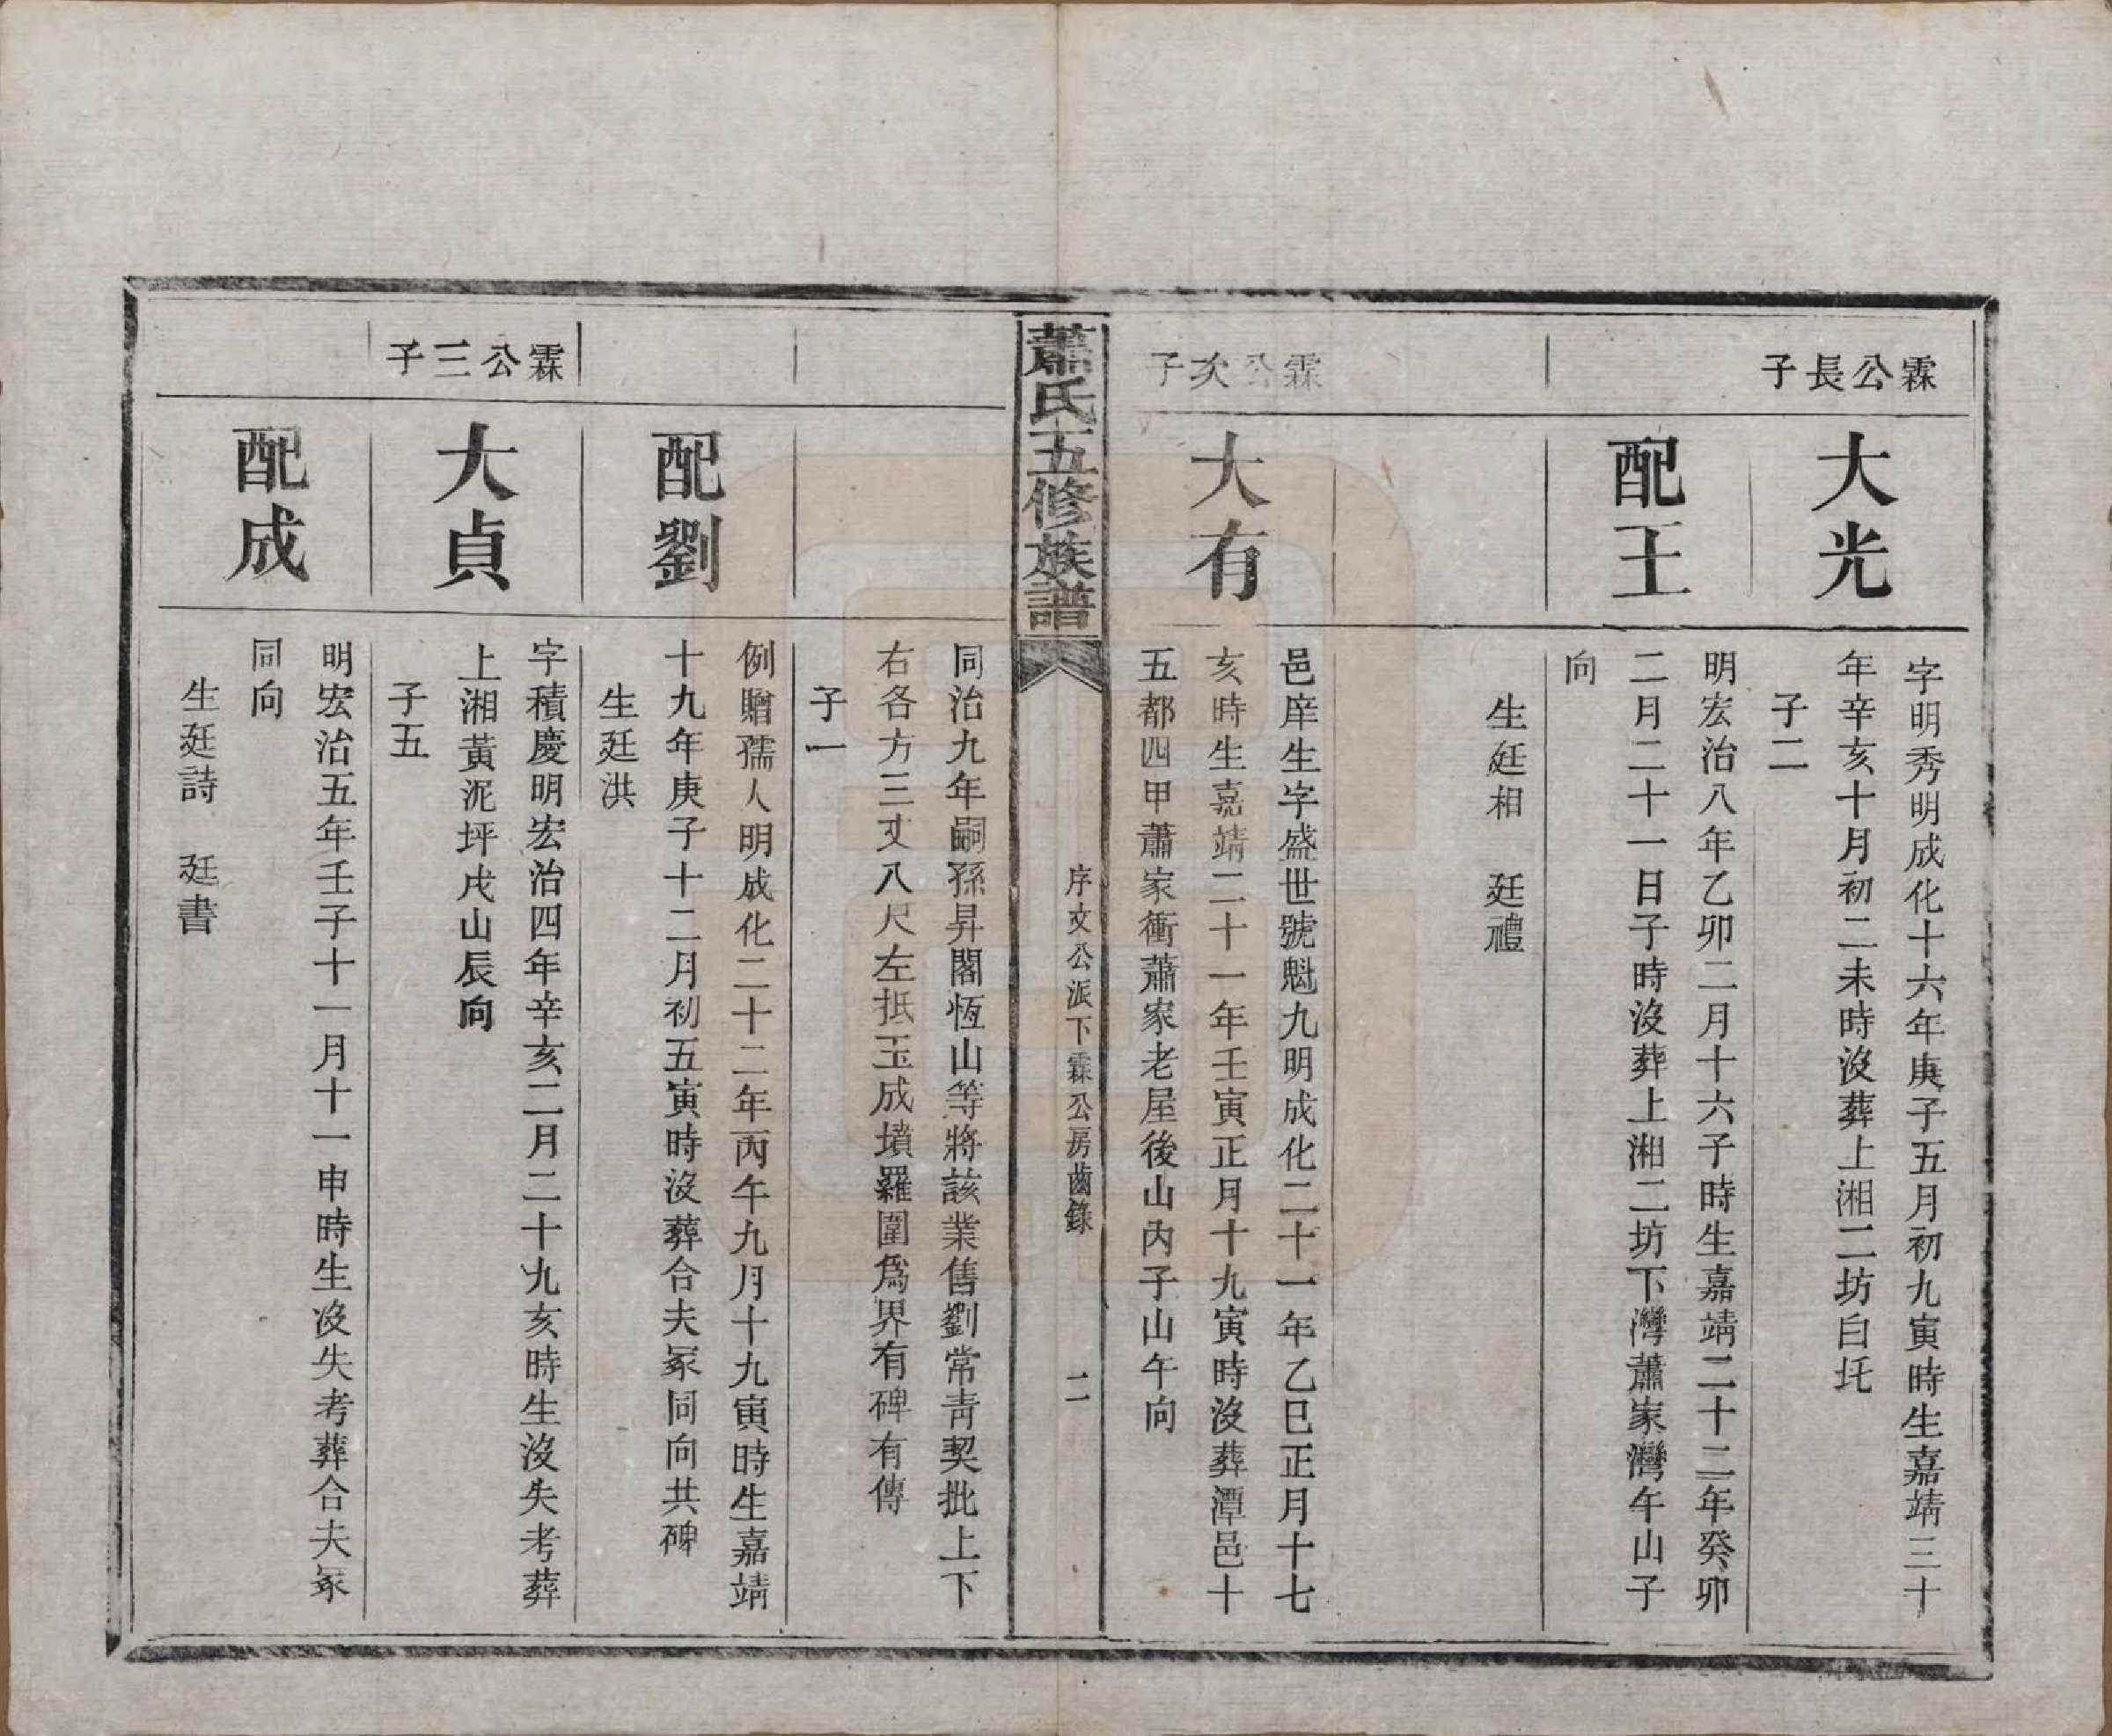 霖公長子
大光
字明秀明成化十六年庚子五月初九寅時生嘉靖三十
年辛亥十月初二未時沒葬上湘二坊白圫
子二
配王
明宏治八年乙卯二月十六子時生嘉靖二十二年癸卯
二月二十一日子時沒葬上湘二坊下灣蕭家灣午山子
向
生廷相　廷禮
霖公次子
大有
邑庠生字盛世號魁九明成化二十一年乙巳正月十七
亥時生嘉靖二十一年壬寅正月十九寅時沒葬潭邑十
五都四甲蕭家衝蕭家老屋後山內子山午向
蕭氏五修族譜
序文公派下霖公房齒錄
二
同治九年嗣孫昇閣恆山等將該業售劉常靑契批上下
右各方三丈八尺左抵玉成墳羅圍爲界有碑有傳
子一
配劉
例贈孺人明成化二十二年丙午九月十九寅時生嘉靖
十九年庚子十二月初五寅時沒葬合夫冢同向共碑
生廷洪
霖公三子
大貞
字積慶明宏治四年辛亥二月二十九亥時生沒失考葬
上湘黃泥坪戌山辰向
子五
配成
明宏治五年壬子十一月十一申時生沒失考葬合夫冢
同向
生廷詩　廷書